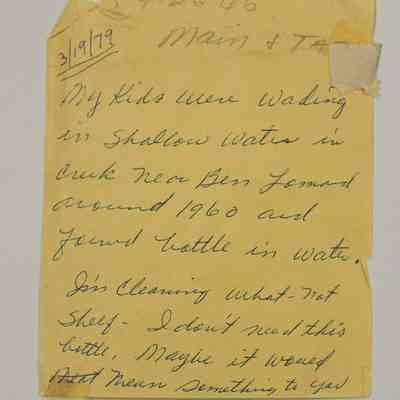 3/19/79
Main & TA
My Kids were wading
in shallow water in
creek near Ben Lomond
around 1960 and
found bottle in water.
I'm cleaning what-not
shelf - I don't need this
bottle. Maybe it would
mean something to you